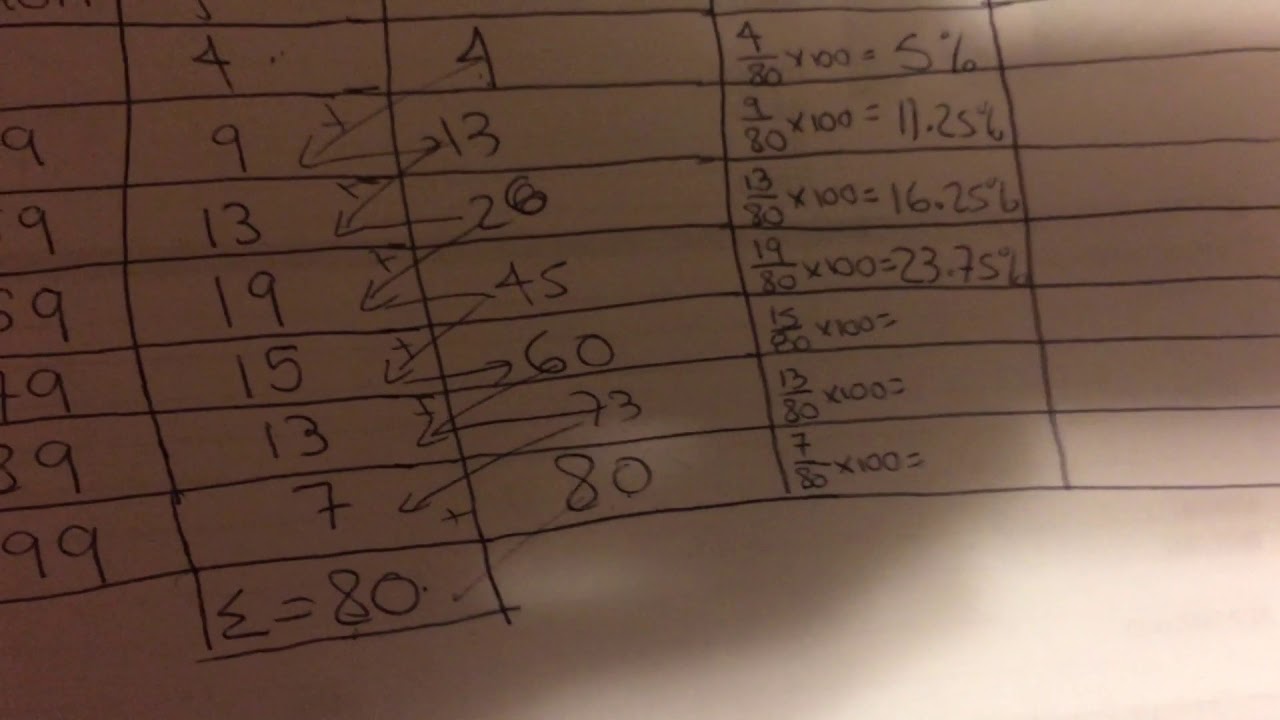 4 4 4/80 ×100 = 5%
9 9 13 9/80 ×100 = 11.25%
9 13 26 13/80 ×100 = 16.25%
59 19 45 19/80 ×100 = 23.75%
79 15 60 15/80 ×100 =
89 13 73 13/80 ×100 =
99 7 80 7/80 ×100 =
Σ = 80